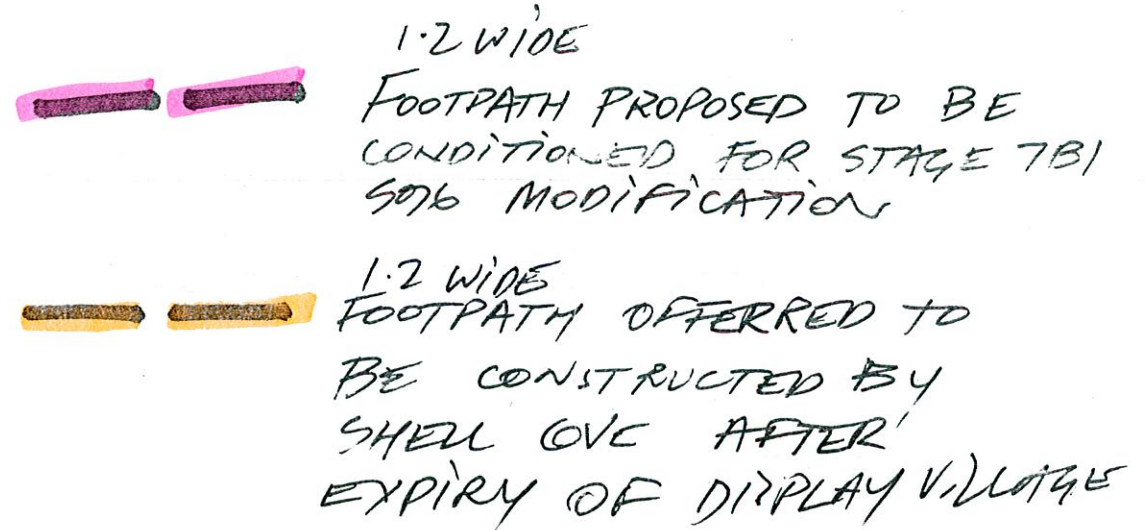 1.2 WIDE
FOOTPATH PROPOSED TO BE
CONDITIONED FOR STAGE 7B1
S096 MODIFICATION
1.2 WIDE
FOOTPATH OFFERRED TO
BE CONSTRUCTED BY
SHELL COVE AFTER
EXPIRY OF DISPLAY VILLAGE